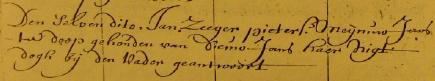 Den Selven dito. Jan Zeeger pieters. Meijnuw Jans
te doop gehouden van Diemo Jans haer nigt
dogh bij den Vader geantwoort